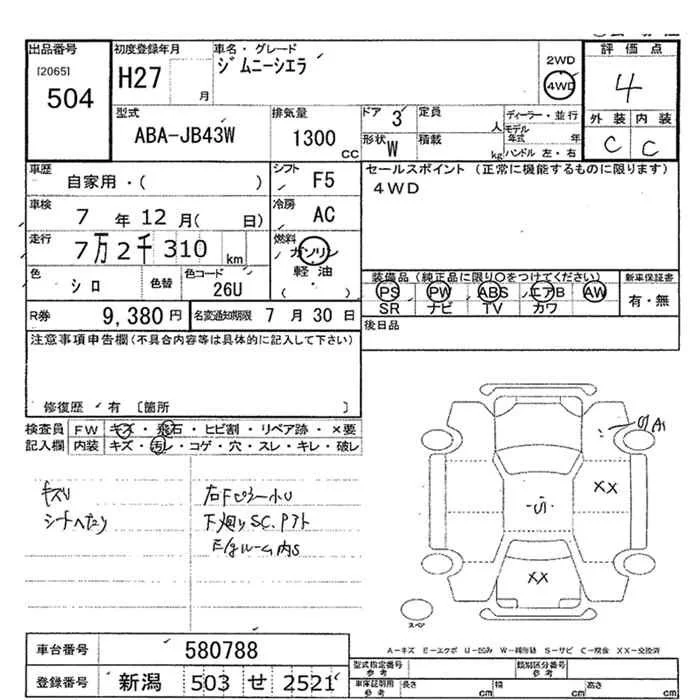 出品番号
[2065]
504
初度登録年月
H27
月
車名・グレード
ジムニーシエラ
2WD
4WD
評価点
4
外装 内装
C C
型式
ABA-JB43W
排気量
1300
CC
ドア 3
形状 W
定員
人
積載
kg
ディーラー・並行
モデル年式 年
ハンドル 左・右
車歴
自家用・( )
シフト F5
車検
7年12月( 日)
冷房 AC
走行
7万2千310 km
燃料
ガソリン
軽油
( )
色
シロ
色替
色コード
26U
R券 9,380円
名変通知期限 7月30日
セールスポイント (正常に機能するものに限ります)
4WD
装備品 (純正品に限り○をつけてください)
PS PW ABS エアB AW
SR ナビ TV カワ
新車保証書
有・無
後日品
注意事項申告欄 (不具合内容等は具体的に記入して下さい)
修復歴・有 [箇所 ]
検査員 FW キズ・飛石・ヒビ割・リペア跡・×要
記入欄 内装 キズ・汚レ・コゲ・穴・スレ・キレ・破レ
キズU
シートヘたり
右Fピラー小U
下廻りSC.Pアト
E/gルーム内S
A1
XX
S
XX
スペア
A-キズ E-エクボ U-凹み W-補修跡 S-サビ C-腐食 XX-交換済
車台番号 580788
登録番号 新潟 503 せ 2521
型式指定番号
参考
類別区分番号
参考
車庫証明用
参考
長さ cm
幅 cm
高さ cm